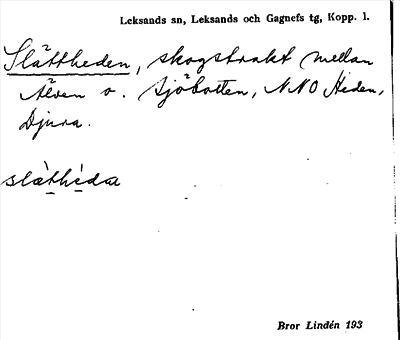 Leksands sn, Leksands och Gagnefs tg, Kopp. l.
Slättheden, skogstrakt mellan
Älven o. Sjöbotten, NNO Heden,
Djura.
slàthèda
Bror Lindén 193